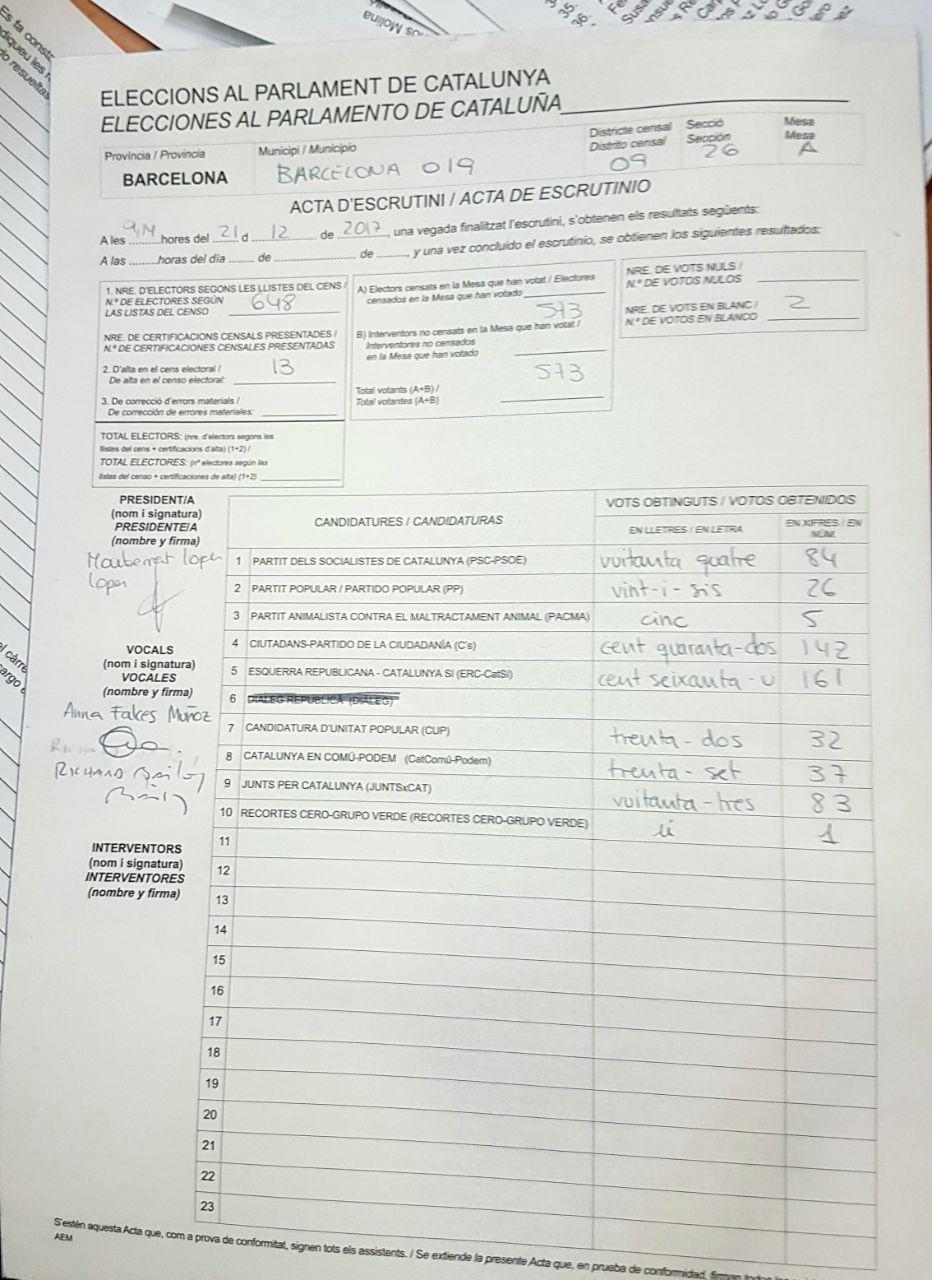 ELECCIONS AL PARLAMENT DE CATALUNYA
ELECCIONES AL PARLAMENTO DE CATALUÑA
Provincia / Provincia
BARCELONA
Municipi / Municipio
BARCELONA 019
Districte censal
Distrito censal
09
Secció
Sección
26
Mesa
Mesa
A
ACTA D'ESCRUTINI / ACTA DE ESCRUTINIO
A les ......... hores del 21 d 12 de 2017, una vegada finalitzat l'escrutini, s'obtenen els resultats següents:
A las ......... horas del día ....... de ....................... de ........, y una vez concluido el escrutinio, se obtienen los siguientes resultados:
1. NRE. D'ELECTORS SEGONS LES LLISTES DEL CENS /
N.º DE ELECTORES SEGÚN
LAS LISTAS DEL CENSO
648
NRE. DE CERTIFICACIONS CENSALS PRESENTADES /
N.º DE CERTIFICACIONES CENSALES PRESENTADAS
2. D'alta en el cens electoral /
De alta en el censo electoral:
13
3. De correcció d'errors materials /
De corrección de errores materiales:
TOTAL ELECTORS: (nre. d'electors segons les
llistes del cens + certificacions d'alta) (1+2) /
TOTAL ELECTORES: (nº electores según las
listas del censo + certificaciones de alta) (1+2)
A) Electors censats en la Mesa que han votat / Electores
censados en la Mesa que han votado
573
B) Interventors no censats en la Mesa que han votat /
Interventores no censados
en la Mesa que han votado
573
Total votants (A+B) /
Total votantes (A+B)
NRE. DE VOTS NULS /
N.º DE VOTOS NULOS
NRE. DE VOTS EN BLANC /
N.º DE VOTOS EN BLANCO
2
PRESIDENT/A
(nom i signatura)
PRESIDENTE/A
(nombre y firma)
VOCALS
(nom i signatura)
VOCALES
(nombre y firma)
Anna Muñoz
RICHARD
INTERVENTORS
(nom i signatura)
INTERVENTORES
(nombre y firma)
CANDIDATURES / CANDIDATURAS
VOTS OBTINGUTS / VOTOS OBTENIDOS
EN LLETRES / EN LETRA
EN XIFRES / EN NÚM.
1 PARTIT DELS SOCIALISTES DE CATALUNYA (PSC-PSOE) vuitanta quatre 84
2 PARTIT POPULAR / PARTIDO POPULAR (PP) vint-i-sis 26
3 PARTIT ANIMALISTA CONTRA EL MALTRACTAMENT ANIMAL (PACMA) cinc 5
4 CIUTADANS-PARTIDO DE LA CIUDADANÍA (C's) cent quaranta-dos 142
5 ESQUERRA REPUBLICANA - CATALUNYA SÍ (ERC-CatSí) cent seixanta-u 161
6 DIÀLEG REPUBLICÀ (DIÀLEG)
7 CANDIDATURA D'UNITAT POPULAR (CUP) trenta-dos 32
8 CATALUNYA EN COMÚ-PODEM (CatComú-Podem) trenta-set 37
9 JUNTS PER CATALUNYA (JUNTSxCAT) vuitanta-tres 83
10 RECORTES CERO-GRUPO VERDE (RECORTES CERO-GRUPO VERDE) ú 1
11
12
13
14
15
16
17
18
19
20
21
22
23
S'estén aquesta Acta que, com a prova de conformitat, signen tots els assistents. / Se extiende la presente Acta que, en prueba de conformidad, firman todos
AEM